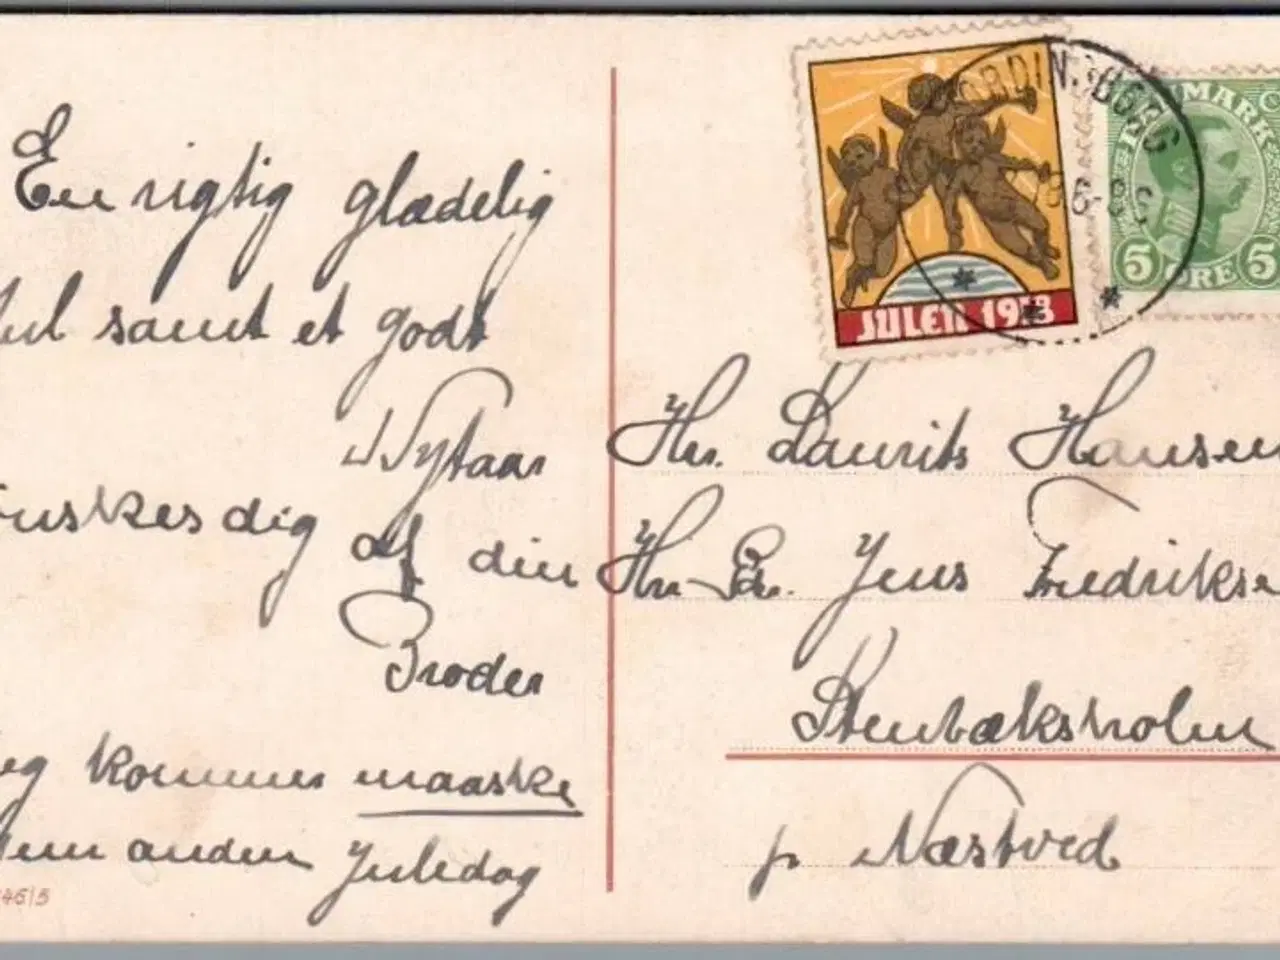 En rigtig glædelig
Jul samt et godt
Nytaar
ønskes dig af din
Broder
Jeg kommer maaske
hjem anden Juledag
46/5
JULEN 1913
VORDINGBORG
DANMARK
5 ØRE 5
Hr. Laurits Hansen
Hr. Jens Fredriksen
Stenbæksholm
p Næstved